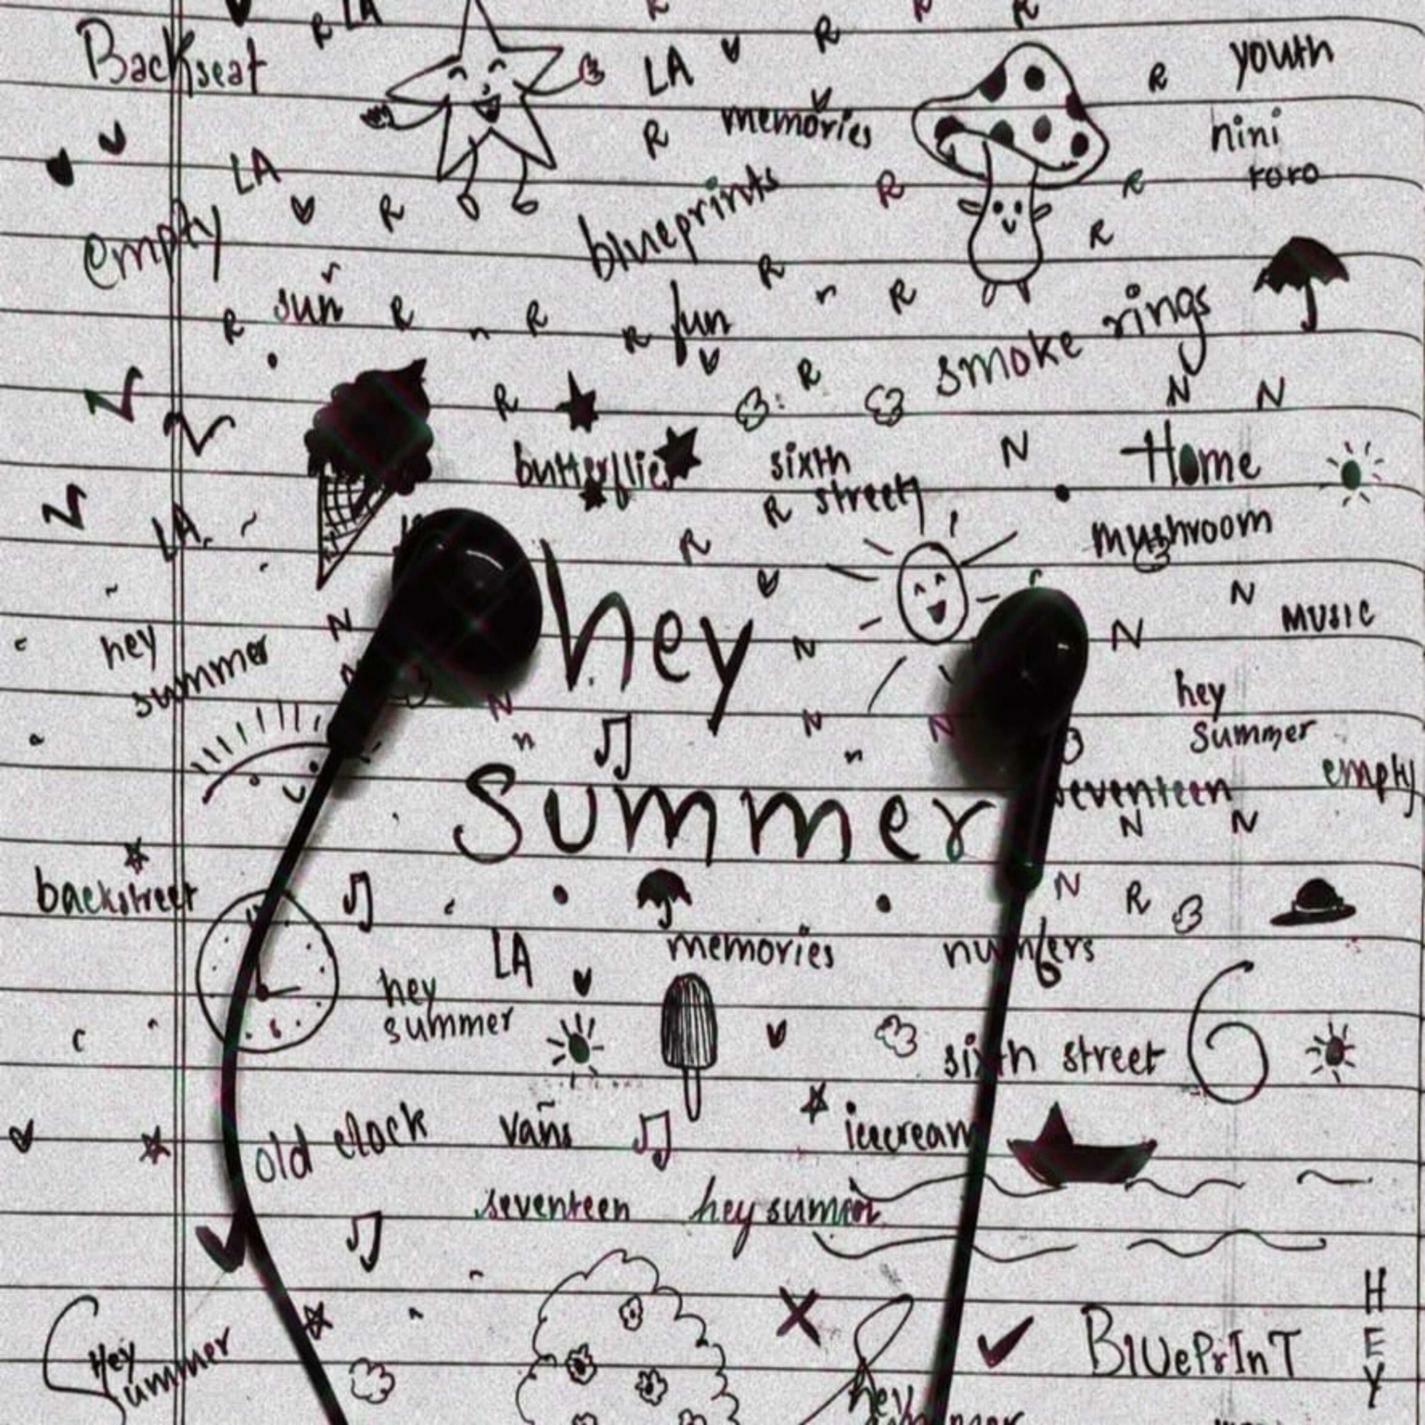 LA
R
R
R
R
Backseat
LA
R
youth
R
memories
R
nini
roro
LA
R
R
R
blueprints
R
empty
R
R
r
R
sun
R
n
R
R
fun
smoke rings
R
R
N
N
butterflies
sixth
street
R
N
Home
LA
R
mushroom
hey
N
N
MUSIC
hey
summer
N
N
N
hey
summer
N
n
N
n
N
summer
seventeen
empty
N
N
backstreet
N
R
LA
memories
numbers
hey
summer
sixth street
6
old clock
vans
icecream
seventeen
hey summer
Hey
summer
BlUePrInT
H
E
Y
hey
summer